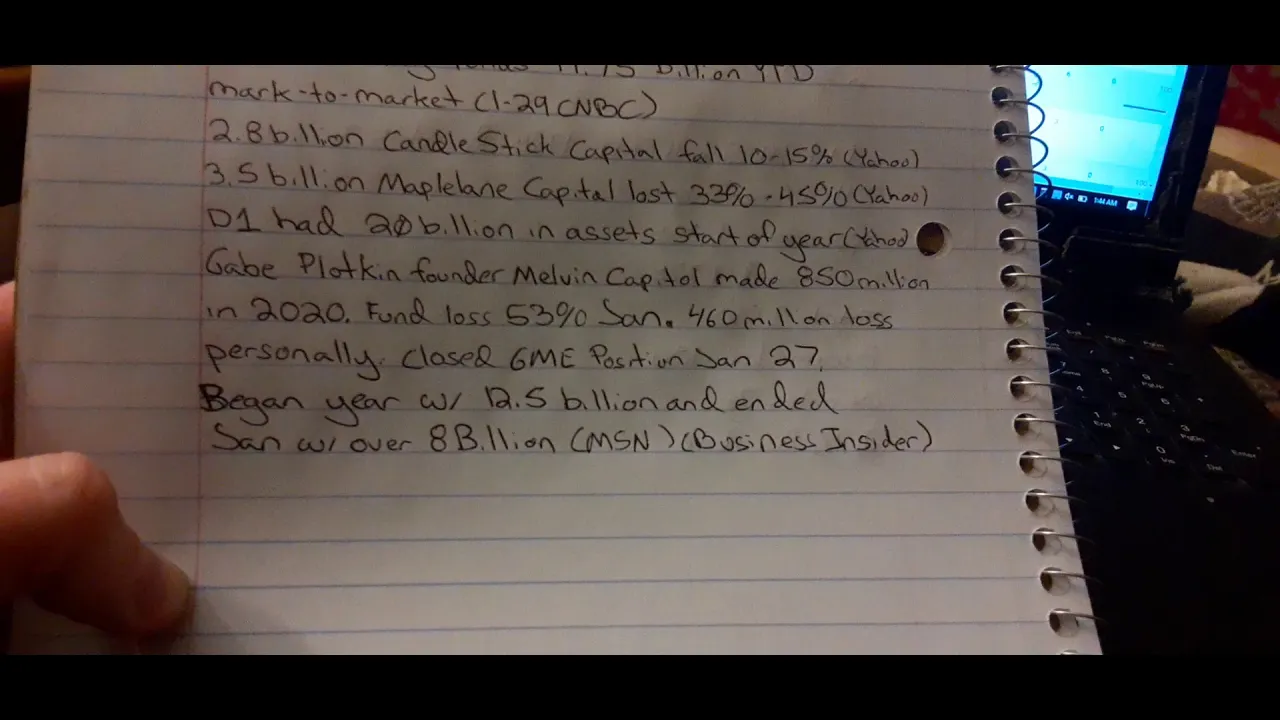 19.75 Billion YTD
mark-to-market (1-29 CNBC)
2.8 billion CandleStick Capital fall 10-15% (Yahoo)
3.5 billion Maplelane Capital lost 33% - 45% (Yahoo)
D1 had 20 billion in assets start of year (Yahoo)
Gabe Plotkin founder Melvin Capitol made 850 million
in 2020. Fund loss 53% Jan. 460 million loss
personally. Closed GME Position Jan 27.
Began year w/ 12.5 billion and ended
Jan w/ over 8 Billion (MSN) (Business Insider)
1:44 AM